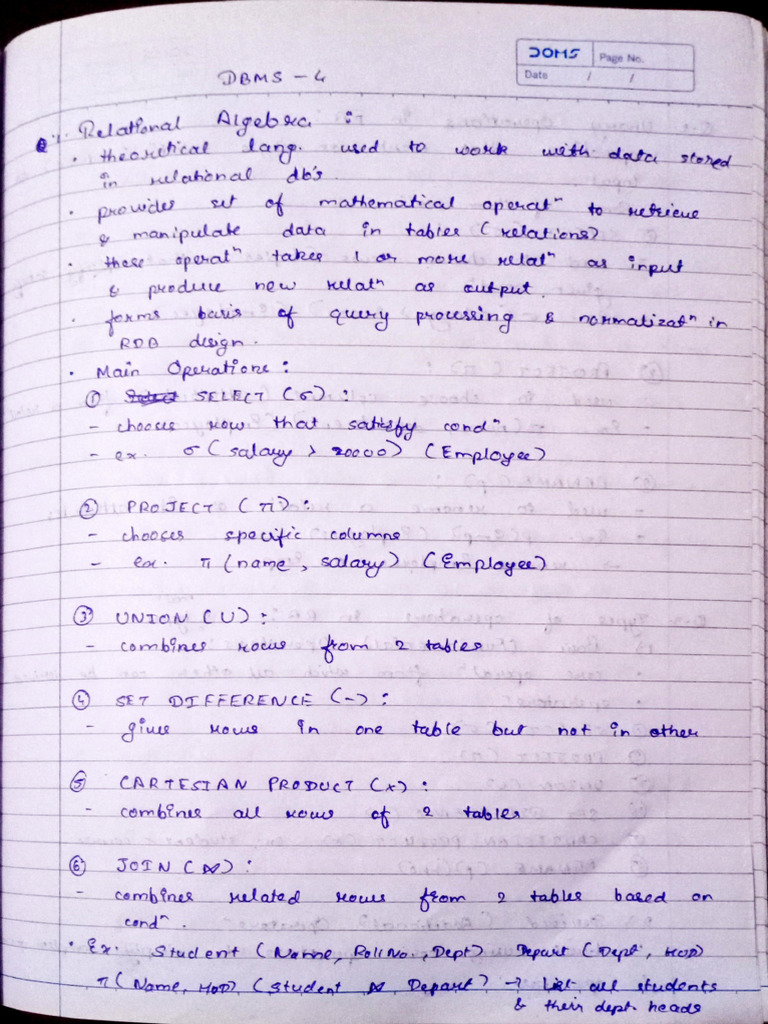 DOMS Page No.
Date / /
DBMS - 4
Relational Algebra :
• theoretical lang. used to work with data stored
in relational db's.
• provides set of mathematical operatⁿ to retrieve
& manipulate data in tables (relations)
• these operatⁿ takes 1 or more relatⁿ as input
& produce new relatⁿ as output.
• forms basis of query processing & normalizatⁿ in
RDB design.
• Main Operations :
① SELECT (σ) :
- chooses row that satisfy condⁿ
- ex. σ (salary > 20000) (Employee)
② PROJECT (π) :
- chooses specific columns
- ex. π (name, salary) (Employee)
③ UNION (U) :
- combines rows from 2 tables
④ SET DIFFERENCE (-) :
- gives rows in one table but not in other
⑤ CARTESIAN PRODUCT (×) :
- combines all rows of 2 tables
⑥ JOIN (⋈) :
- combines related rows from 2 tables based on
condⁿ.
• Ex. Student (Name, Roll No., Dept) Depart (Dept, HOD)
π (Name, HOD) (Student ⋈ Depart) → List all students
& their dept. heads